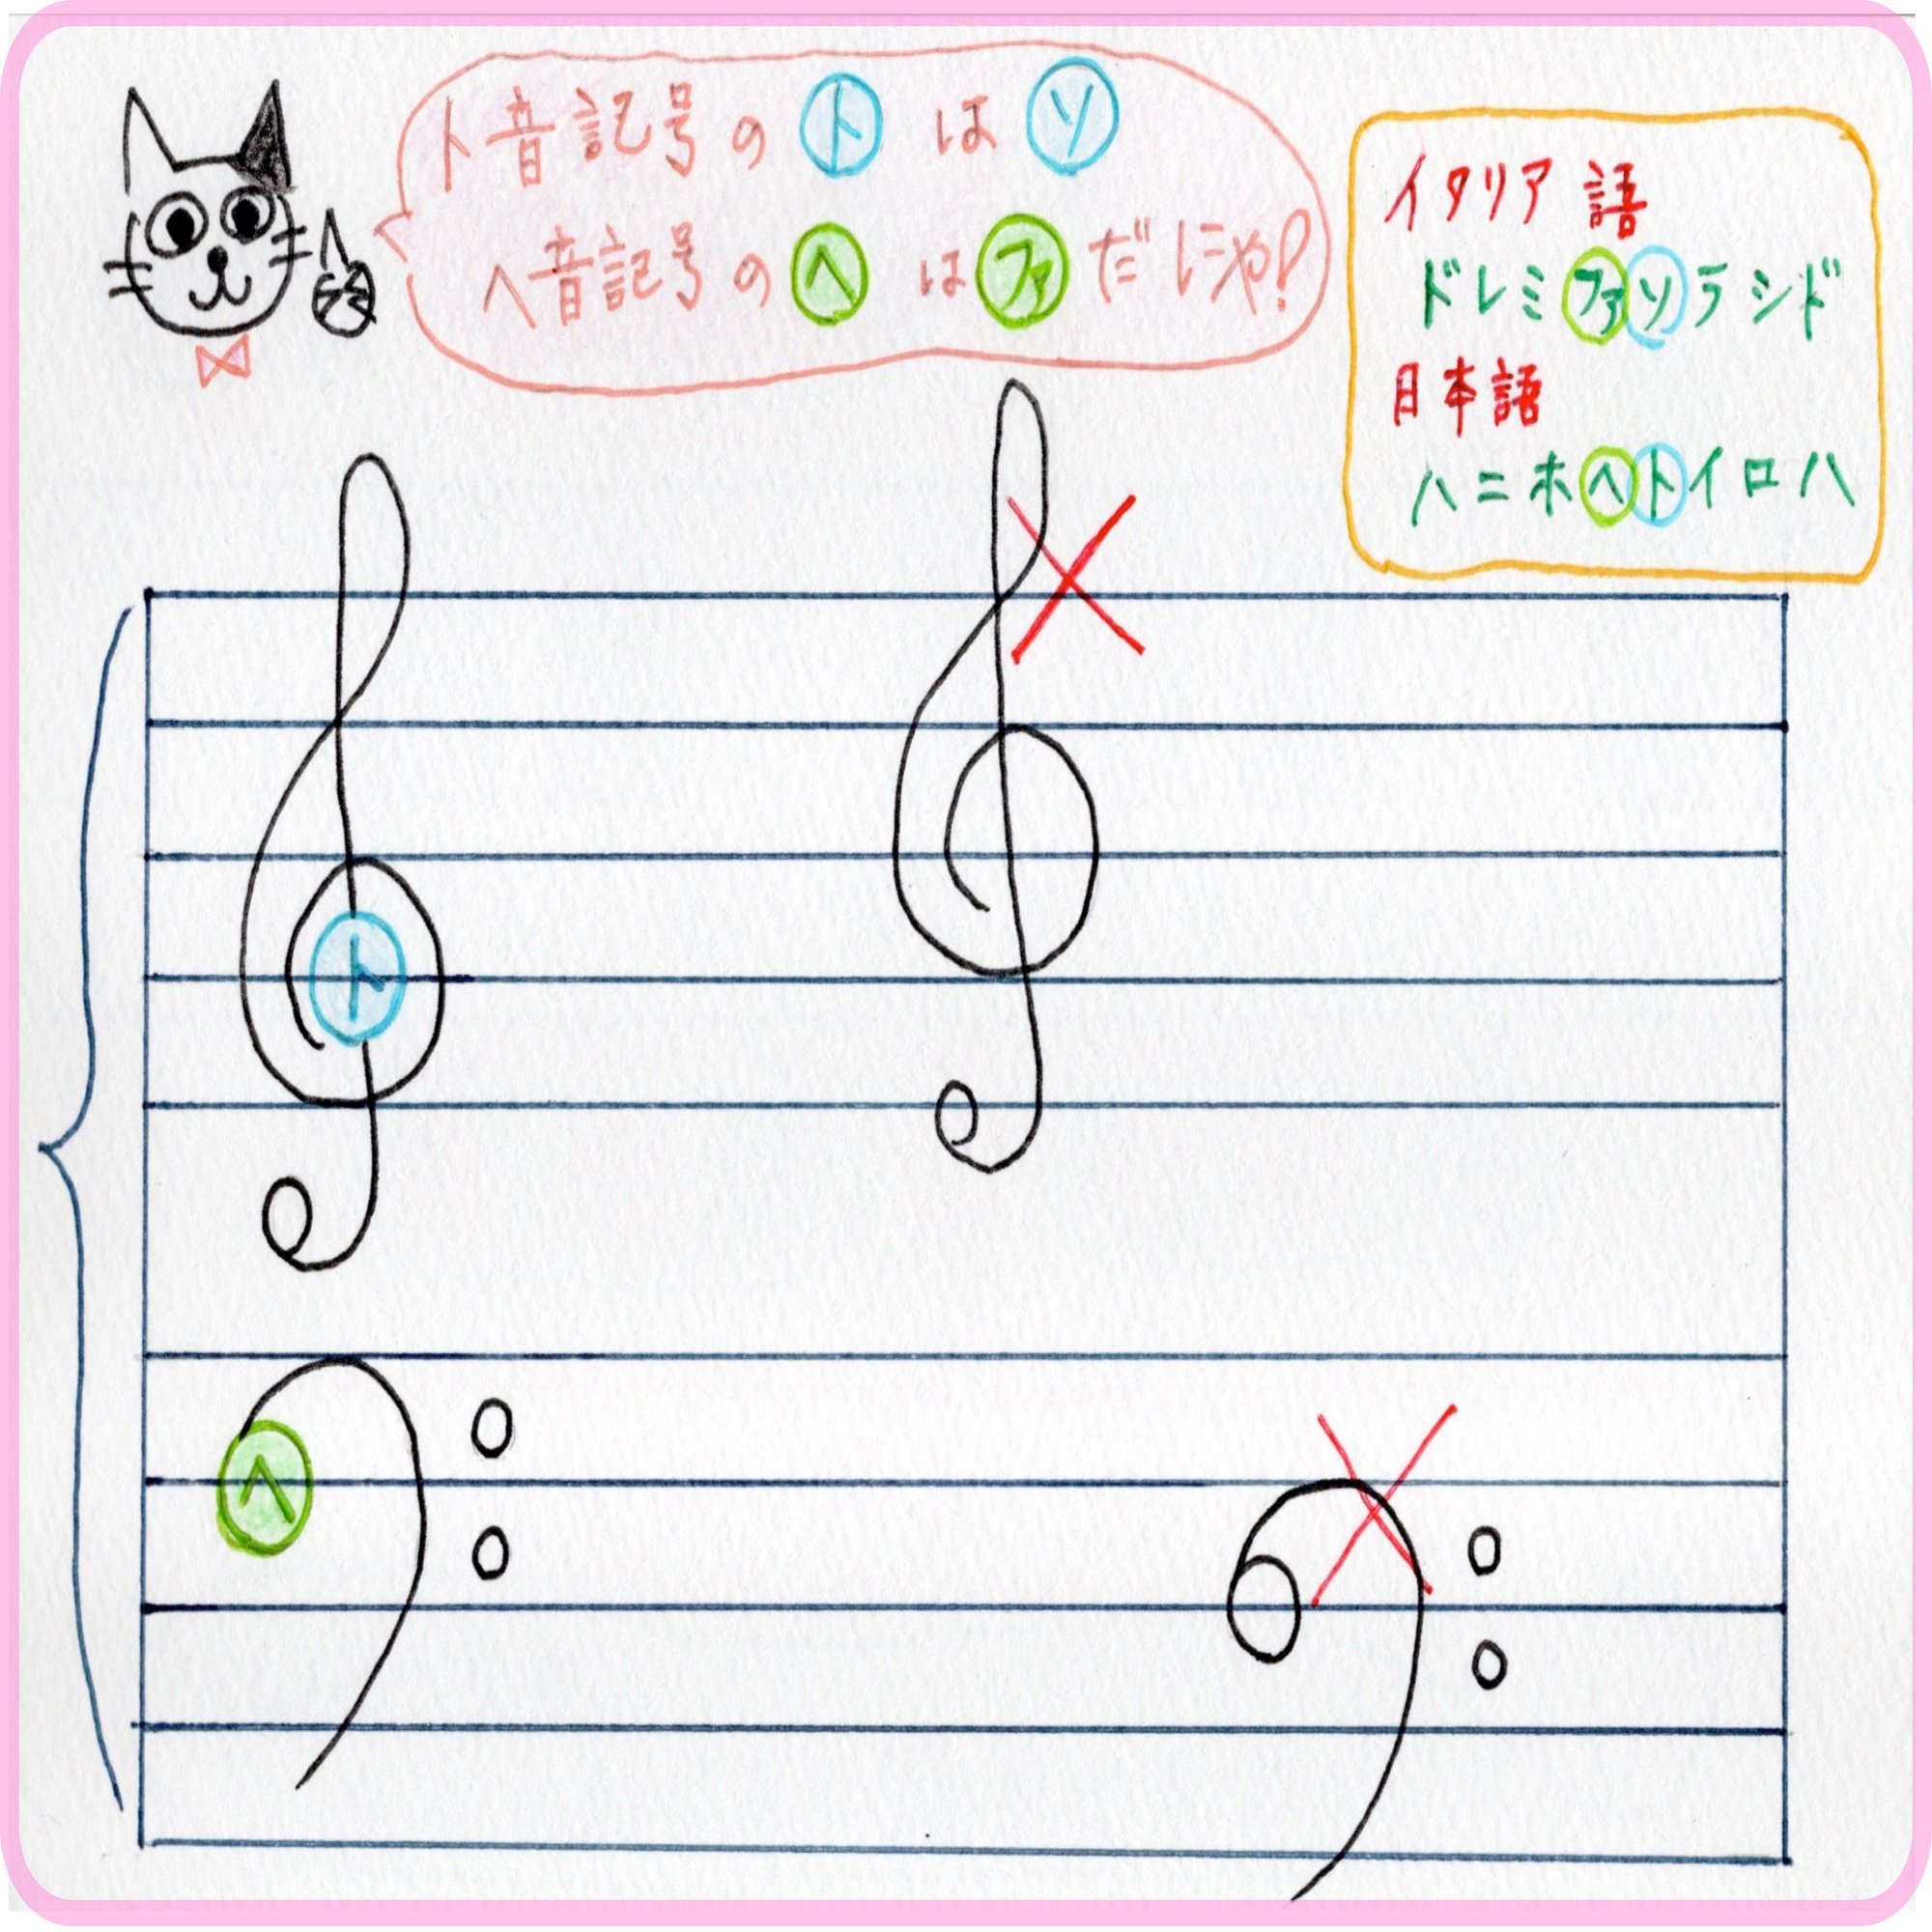 ト音記号のトはソ
ヘ音記号のヘはファだにゃ!
イタリア語
ドレミファソラシド
日本語
ハニホヘトイロハ
ト
ヘ